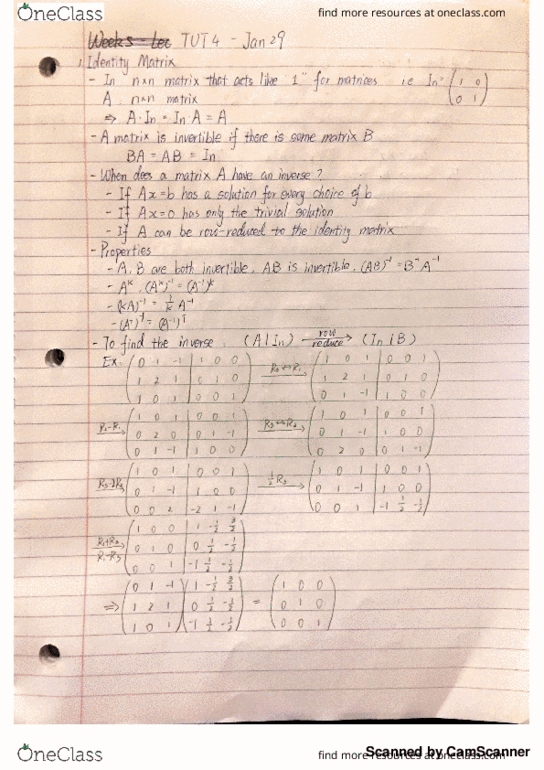 OneClass find more resources at oneclass.com
Weeks - Lec TUT 4 - Jan 29
1. Identity Matrix
- In n×n matrix that acts like "1" for matrices ie In = ( 1 0
0 1 )
A n×n matrix
⇒ A·In = In·A = A
- A matrix is invertible if there is some matrix B
BA = AB = In
- When does a matrix A have an inverse?
- If Ax=b has a solution for every choice of b
- If Ax=0 has only the trivial solution
- If A can be row reduced to the identity matrix
- Properties
- A, B are both invertible, AB is invertible, (AB)⁻¹ = B⁻¹A⁻¹
- Aᵏ, (Aᵏ)⁻¹ = (A⁻¹)ᵏ
- (kA)⁻¹ = 1/k A⁻¹
- (Aᵀ)⁻¹ = (A⁻¹)ᵀ
- To find the inverse, (A | In) row reduce → (In | B)
Ex. ( 0 1 -1 | 1 0 0 R3↔R1 → ( 1 0 1 | 0 0 1
1 2 1 | 0 1 0 1 2 1 | 0 1 0
1 0 1 | 0 0 1 ) 0 1 -1 | 1 0 0 )
( 1 0 1 | 0 0 1 ( 1 0 1 | 0 0 1
R2-R1 → 0 2 0 | 0 1 -1 R3↔R2 → 0 1 -1 | 1 0 0
0 1 -1 | 1 0 0 ) 0 2 0 | 0 1 -1 )
( 1 0 1 | 0 0 1 ( 1 0 1 | 0 0 1
R3-2R2 → 0 1 -1 | 1 0 0 ½R3 → 0 1 -1 | 1 0 0
0 0 2 | -2 1 -1 ) 0 0 1 | -1 ½ -½ )
( 1 0 0 | 1 -½ 3/2
R2+R3 R1-R3 → 0 1 0 | 0 ½ -½
0 0 1 | -1 ½ -½ )
( 0 1 -1 ) ( 1 -½ 3/2 ) ( 1 0 0 )
⇒ 1 2 1 0 ½ -½ = 0 1 0
1 0 1 -1 ½ -½ 0 0 1
Scanned by CamScanner
OneClass find more resources at oneclass.com